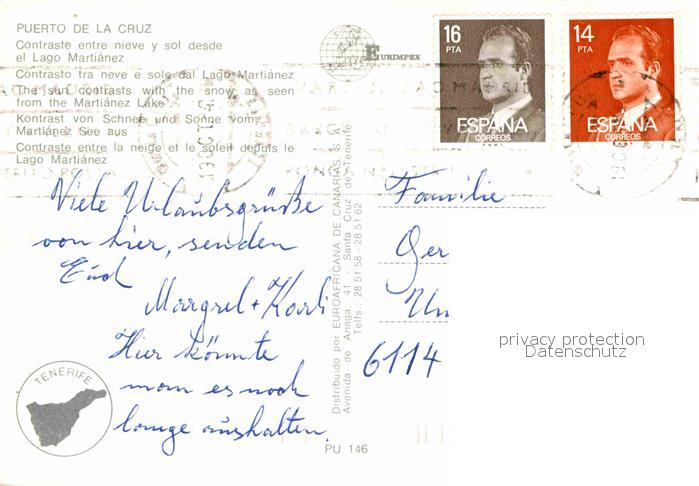 PUERTO DE LA CRUZ
Contraste entre nieve y sol desde
el Lago Martiánez
Contrasto tra neve e sole dal Lago Martiánez
The sun contrasts with the snow as seen
from the Martiánez Lake
Kontrast von Schnee und Sonne vom
Martiánez See aus
Contraste entre la neige et le soleil depuis le
Lago Martiánez
EURIMPEX
16
PTA
ESPAÑA
CORREOS
14
PTA
ESPAÑA
CORREOS
Viele Urlaubsgrüße
von hier, senden
Euch
Margret + Karli
Hier könnte
man es noch
lange aushalten.
TENERIFE
Distribuido por EUROAFRICANA DE CANARIAS, S.
Avenida de Anaga, 41 - Santa Cruz de Tenerife
Telfs.: 28 51 58 - 28 51 62
PU 146
Familie
Ger
Un
6114
privacy protection
Datenschutz